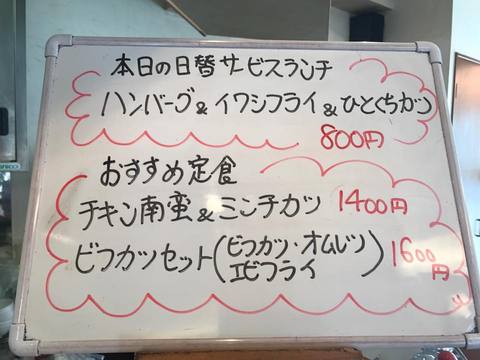 本日の日替サービスランチ
ハンバーグ&イワシフライ&ひとくちカツ
800円
おすすめ定食
チキン南蛮&ミンチカツ 1400円
ビフカツセット(ビフカツ・オムレツ 1600円
エビフライ)